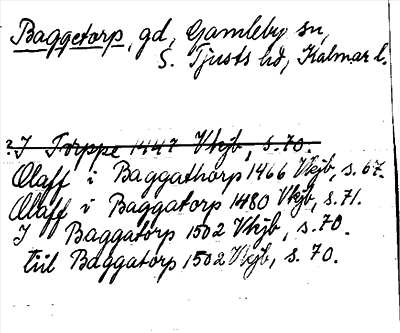 Baggetorp, gd, Gamleby sn,
S. Tjusts hd, Kalmar l.
? I Torppe 1447 Vkjb, s. 70.
Olaff i Baggathorp 1466 Vkjb, s. 67.
Olaff i Baggatorp 1480 Vkjb, s. 71.
I Baggatorp 1502 Vkjb, s. 70.
tiil Baggatorp 1502 Vkjb, s. 70.